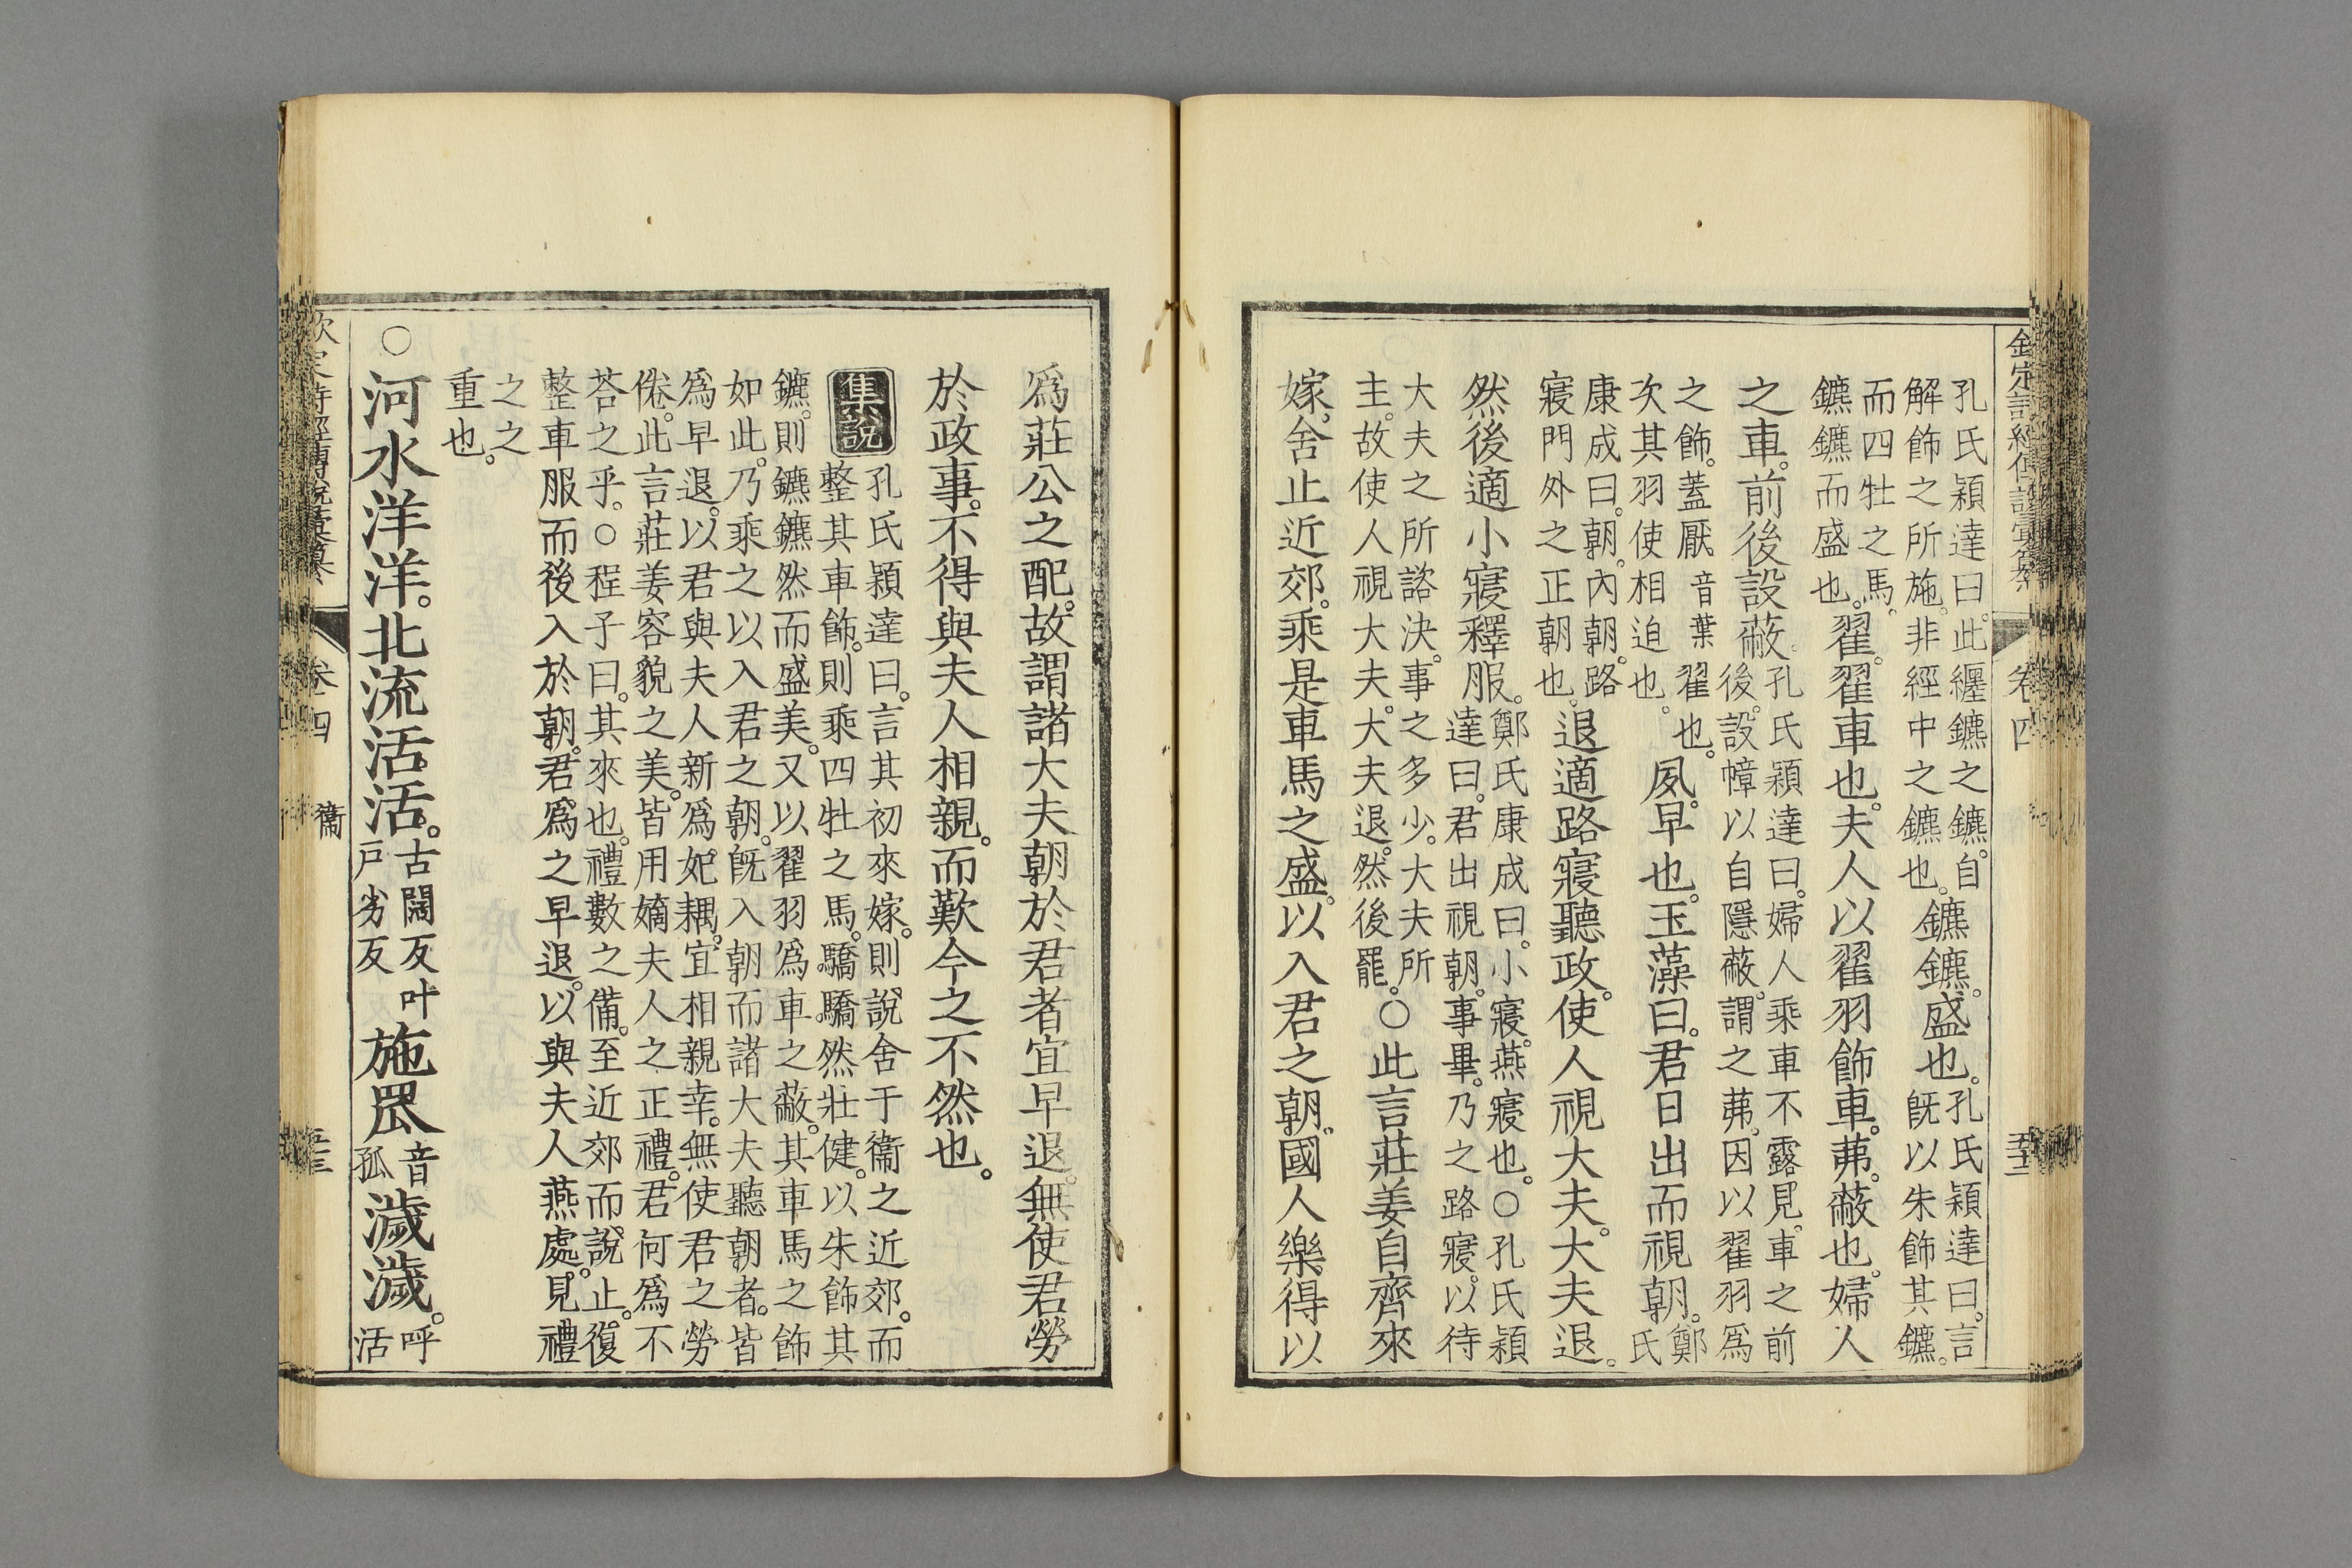 欽定詩經傳說彙纂 卷四
孔氏穎達曰。此纒鑣之鑣。自
解飾之所施。非經中之鑣也。
鑣鑣。盛也。
孔氏穎達曰。言
旣以朱飾其鑣。
而四牡之馬。
鑣鑣而盛也。
翟。翟車也。夫人以翟羽飾車。茀。蔽也。婦人
之車。前後設蔽。
孔氏穎達曰。婦人乘車不露見。車之前
後。設幛以自隱蔽。謂之茀。因以翟羽爲
之飾。蓋厭。音葉翟也。
次其羽使相迫也。
夙。早也。玉藻曰。君日出而視朝。
鄭
氏
康成曰。朝。內朝。路
寢門外之正朝也。
退適路寢聽政。使人視大夫。大夫退。
然後適小寢釋服。
鄭氏康成曰。小寢。燕寢也。○孔氏穎
達曰。君出視朝。事畢。乃之路寢。以待
大夫之所諮決。事之多少。大夫所
主。故使人視大夫。大夫退。然後罷。
○此言莊姜自齊來
嫁。舍止近郊。乘是車馬之盛。以入君之朝。國人樂得以
爲莊公之配。故謂諸大夫朝於君者宜早退。無使君勞
於政事。不得與夫人相親。而歎今之不然也。
集說
孔氏穎達曰。言其初來嫁。則說舍于衞之近郊。而
整其車飾。則乘四牡之馬。驕驕然壯健。以朱飾其
鑣。則鑣鑣然而盛美。又以翟羽爲車之蔽。其車馬之飾
如此。乃乘之以入君之朝。旣入朝而諸大夫聽朝者。皆
爲早退。以君與夫人新爲妃耦。宜相親幸。無使君之勞
倦。此言莊姜容貌之美。皆用嫡夫人之正禮。君何爲不
荅之乎。○程子曰。其來也。禮數之備。至近郊而說止。復
整車服而後入於朝。君爲之早退。以與夫人燕處。見禮
之之
重也。
○河水洋洋。北流活活。
古闊反叶
戶劣反
施罛
音
孤
濊濊。
呼
活
欽定詩經傳說彙纂 卷四 衞